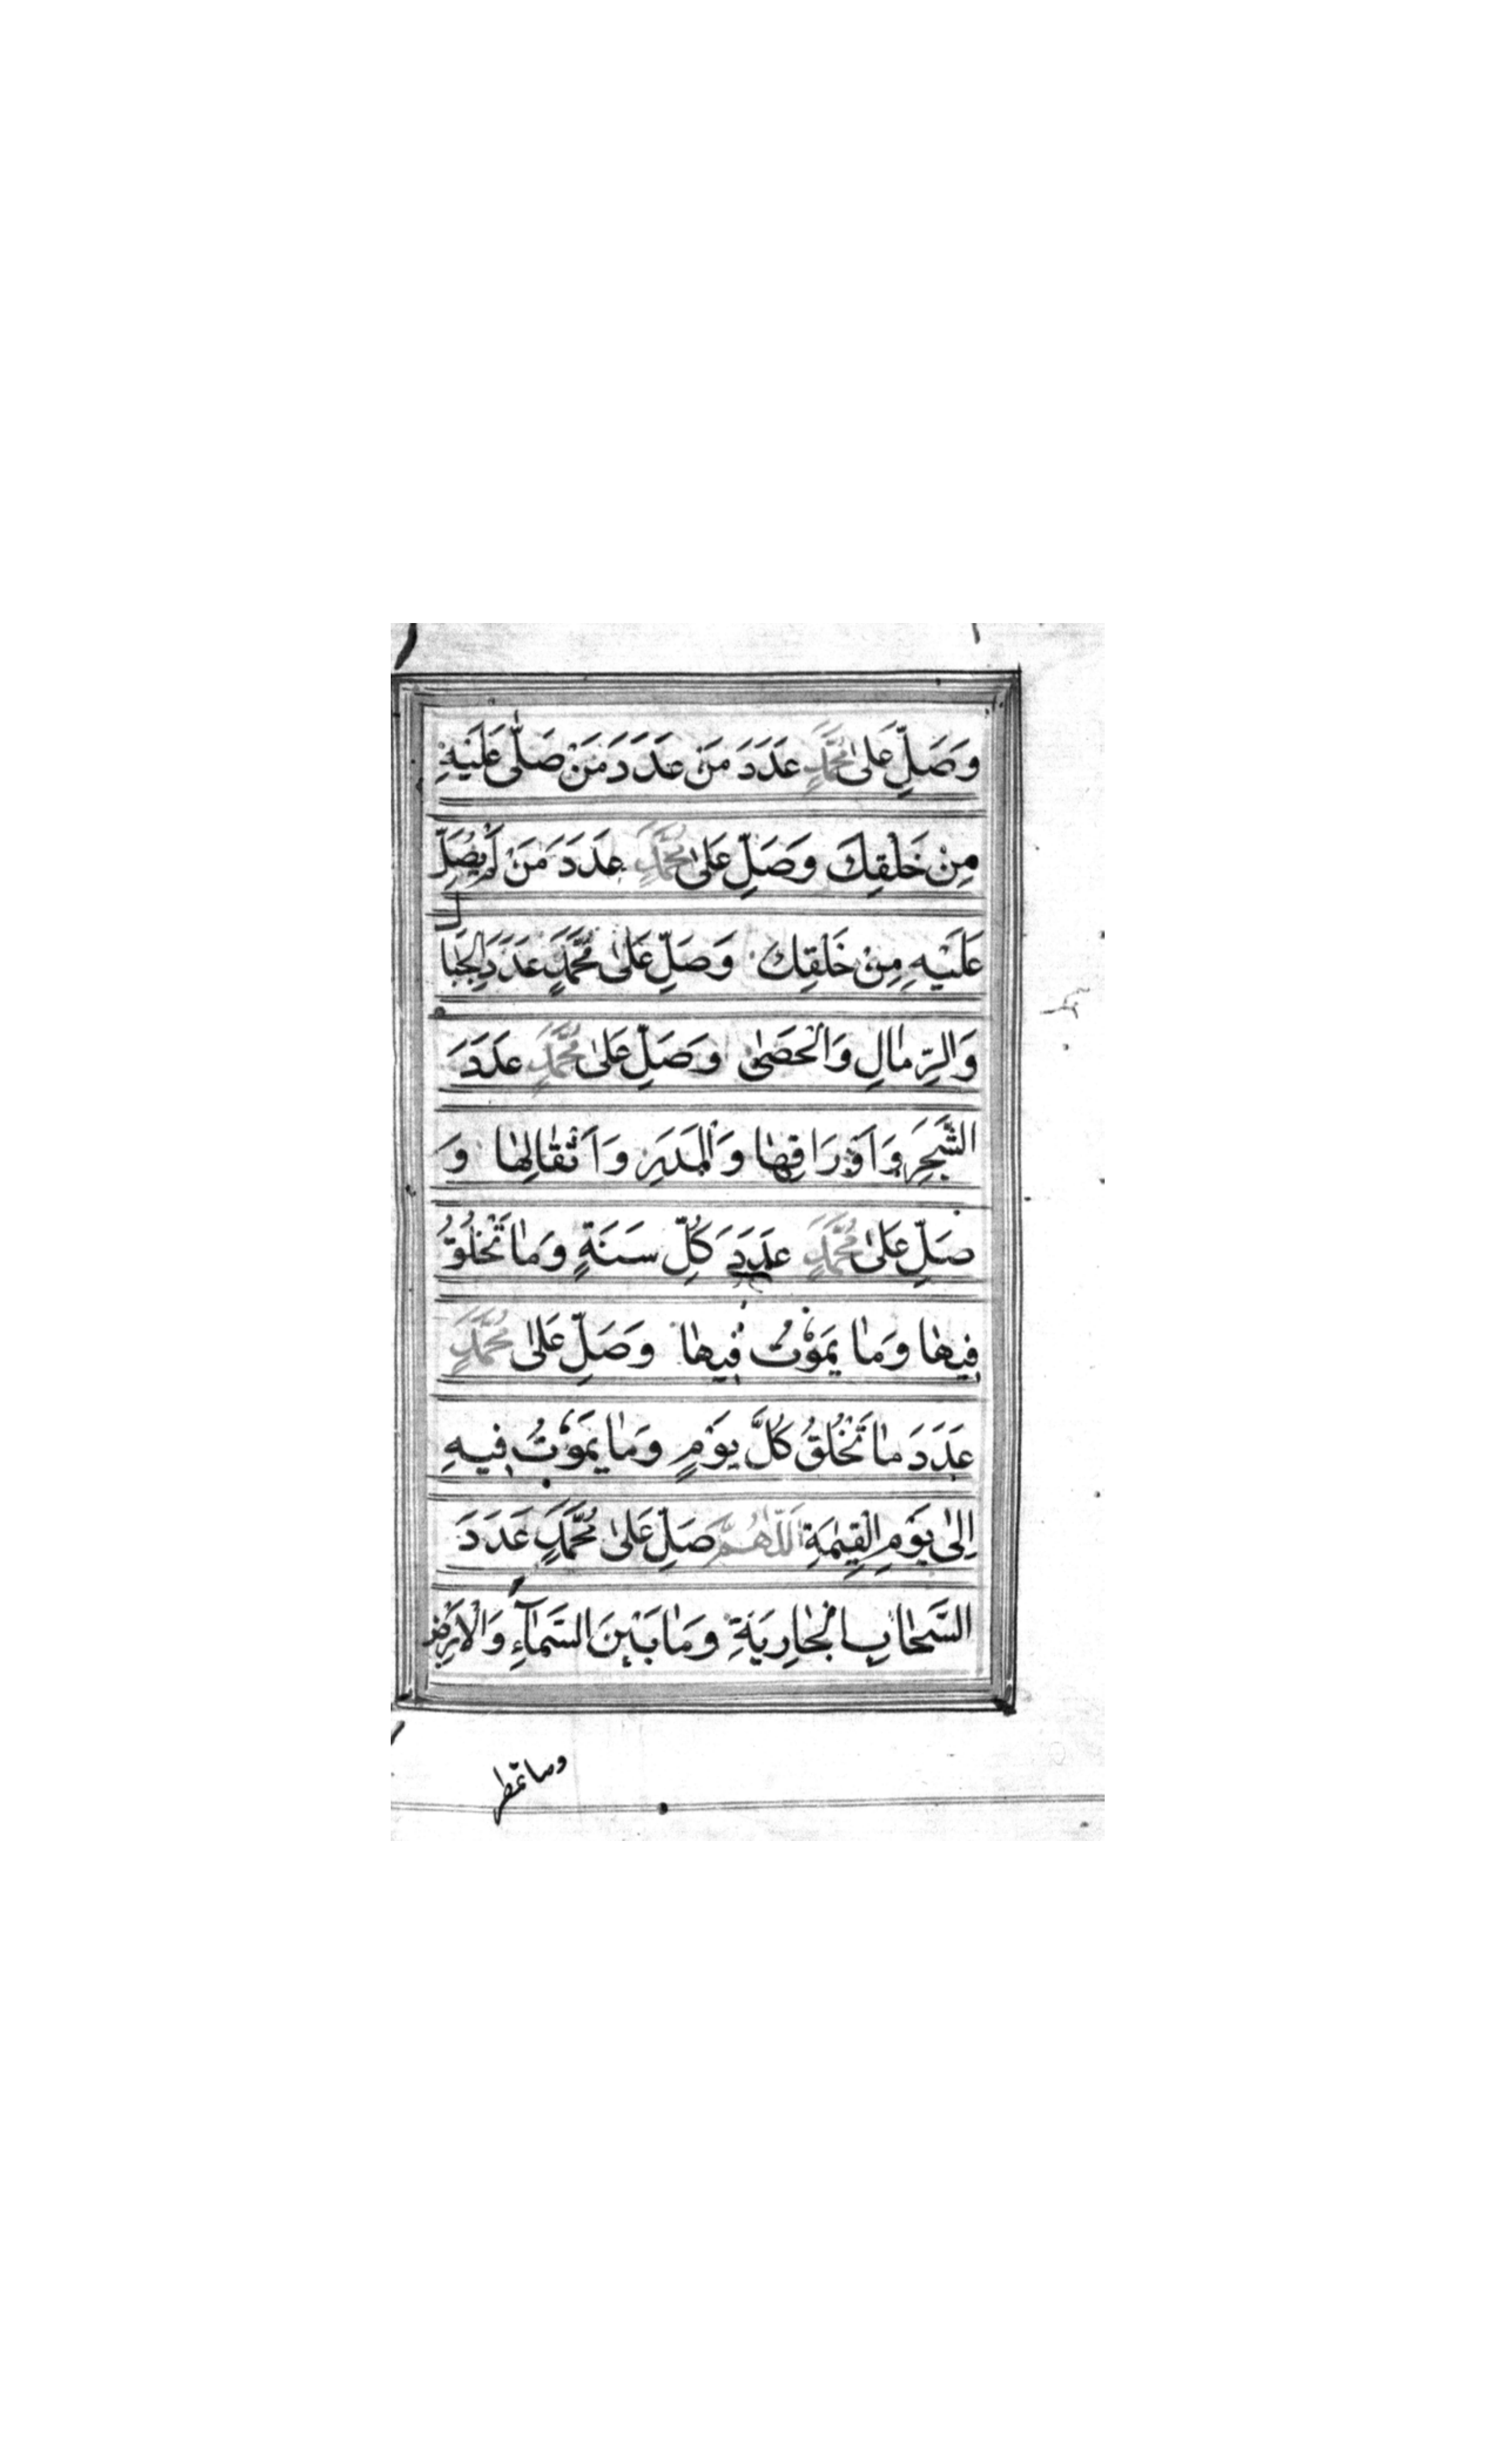 وَصَلِّ عَلىٰ مُحَمَّدٍ عَدَدَ مَنْ عَدَدَ مَنْ صَلّٰى عَلَيْهِ
مِنْ خَلْقِكَ وَصَلِّ عَلىٰ مُحَمَّدٍ عَدَدَ مَنْ لَمْ يُصَلِّ
عَلَيْهِ مِنْ خَلْقِكَ وَصَلِّ عَلىٰ مُحَمَّدٍ عَدَدَ الْجِبَالِ
وَالرِّمٰالِ وَالْحَصٰى وَصَلِّ عَلىٰ مُحَمَّدٍ عَدَدَ
الشَّجَرِ وَاَوْرَاقِهٰا وَالْمَدَرِ وَاَثْقٰالِهٰا وَ
صَلِّ عَلىٰ مُحَمَّدٍ عَدَدَ كُلِّ سَنَةٍ وَمٰا تَخْلُقُ
فِيهٰا وَمٰا يَمُوْتُ فِيهٰا وَصَلِّ عَلىٰ مُحَمَّدٍ
عَدَدَ مٰا تَخْلُقُ كُلَّ يَوْمٍ وَمٰا يَمُوْتُ فِيهِ
اِلىٰ يَوْمِ الْقِيٰمَةِ اَللّٰهُمَّ صَلِّ عَلىٰ مُحَمَّدٍ عَدَدَ
السَّحٰابِ الْجٰارِيَةِ وَمٰا بَيْنَ السَّمٰاۤءِ وَالْاَرْضِ
وما تمطر